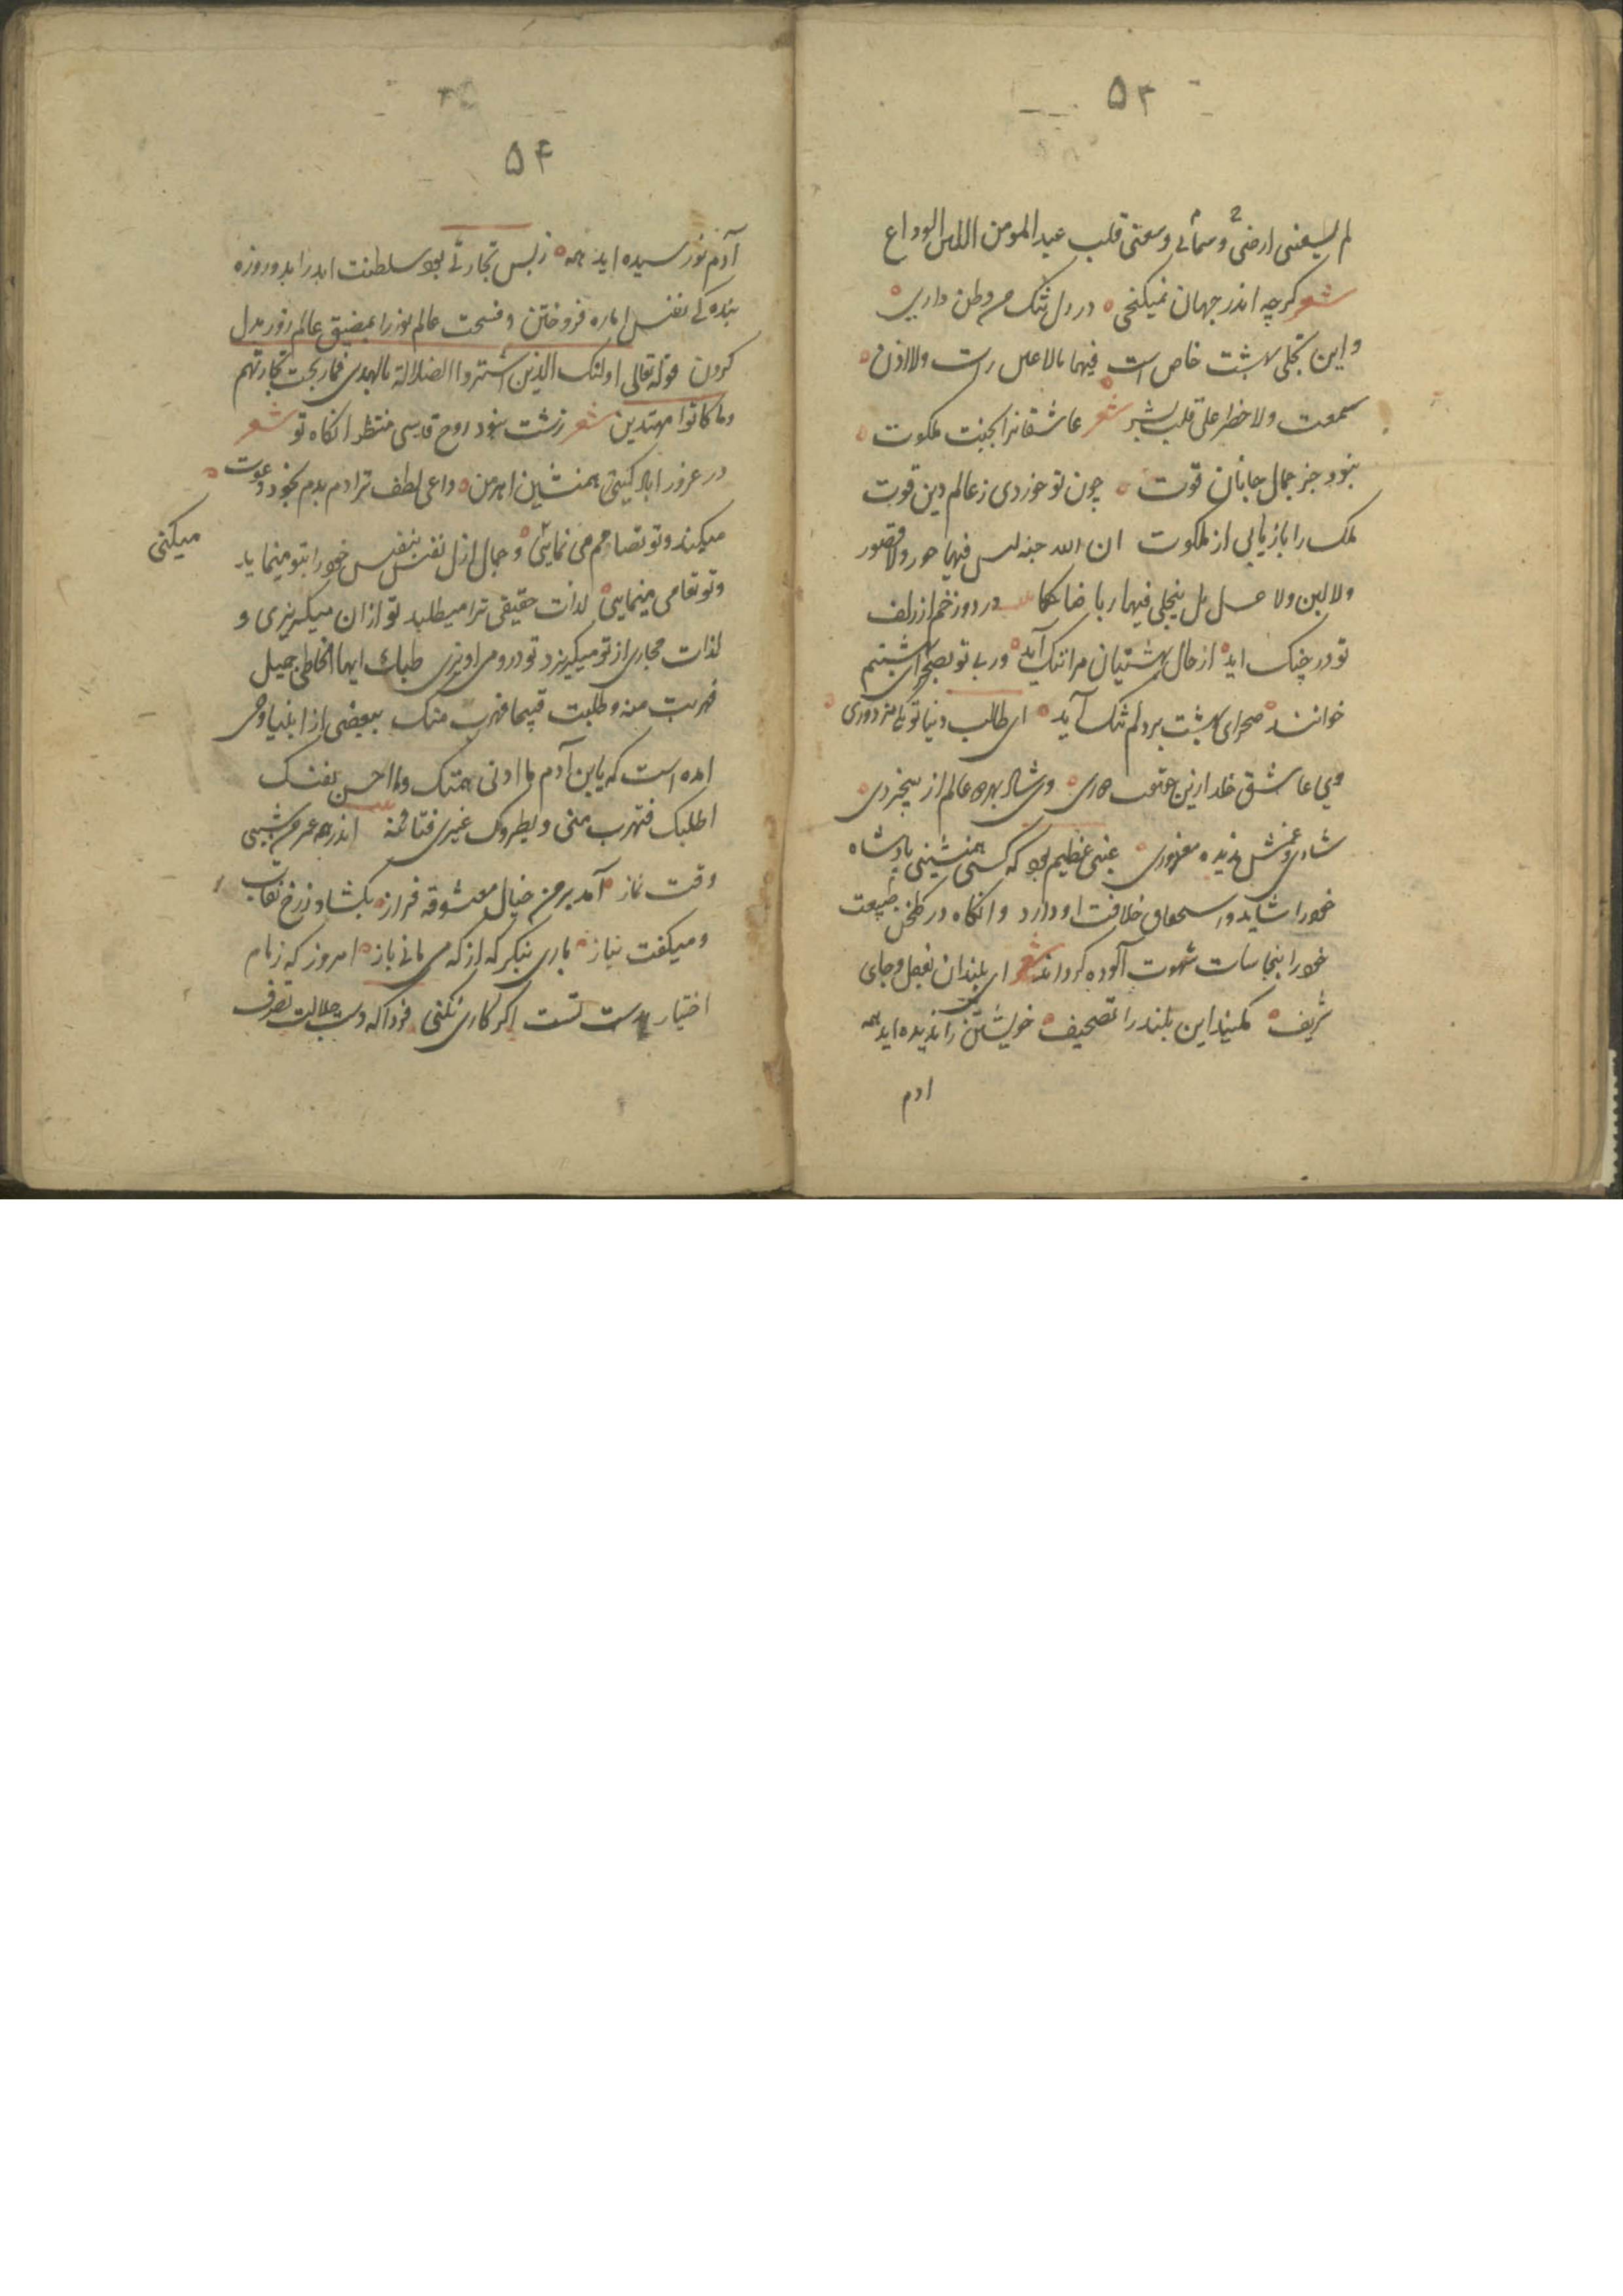 ۵۳
لم یسعنی ارضی و سمائی و سعنی قلب عبد المومن اللین الوداع
شعر کرچه اندر جهان نمیکنجی در دل تنک من وطن داری
و این تجلی بهشت خاص است فیها مالا عین رات ولا اذن
سمعت ولا خطر علی قلب بشر شعر عاشقانرا بجنت ملکوت
نبود جز جمال جانان قوت چون تو خوردی ز عالم دین قوت
ملک را بازیابی از ملکوت ان الله جنه لیس فیها حور ولا قصور
ولا لبن ولا عسل بل یتجلی فیها ربنا ضاحکا در دوزخم ار زلف
تو در چنک اید از حال بهشتیان مرا ننک آید ور بی تو بصحرای بهشتم
خوانند صحرای بهشت بر دلم تنک آید ای طالب دنیا تو یکی مزدوری
وی عاشق خلد ازین حقیقت دوری وی شاد بهر دو عالم از بیخبردی
شادی و غمش ندیده معذوری غبنی عظیم بود که کسی همنشینی پادشاه
خود را شاید و استحقاق خلافت او دارد و انکاه در کلخن طبیعت
خود را بنجاسات شهوت آلوده کرداند شعر ای بلندان بفعل و جای
شریف مکنید این بلند را تصحیف خویشتن را ندیده اید همه
ادم
۵۴
آدم نورسیده اید همه ز بس تجارتی بود سلطنت ابد را بدو روزه
بنده کی نفس اماره فروختن و فسحت عالم نور را بمضیق عالم زور بدل
کردن قوله تعالی اولئک الذین اشتروا الضلالة بالهدی فما ربحت تجارتهم
وما کانوا مهتدین شعر زشت نبود روح قدسی منتظر انکاه تو شعر
در غرور اباد کیتی همنشین اهرمن داعی لطف ترا دم بدم بخود دعوت
میکند و تو تصامم می نمایی و جمال ازل نفس بنفس خود را بتو مینماید
میکنی
و تو تعامی مینمایی لذات حقیقی ترا میطلبد تو ازان میکریزی و
لذات مجازی از تو میکریزد تو درو می اویزی طلبک ایها الخاطی جمیل
فهربت منه و طلبت قبیحا فهرب منک ببعضی از انبیا وحی
امده است که یا بن آدم ما ادنی همتک و ما اخس نفسک
اطلبک فتهرب منی و یطردک غیری فتاتیه اندر همه عمر من شبی
وقت نماز آمد بر من خیال معشوقه فراز بکشاد ز رخ نقاب
و میکفت بنیاز باری بنکر که از که می مانی باز امروز که زمام
اختیار بدست تست اکر کاری نکنی فردا که دست جلالت تصرف